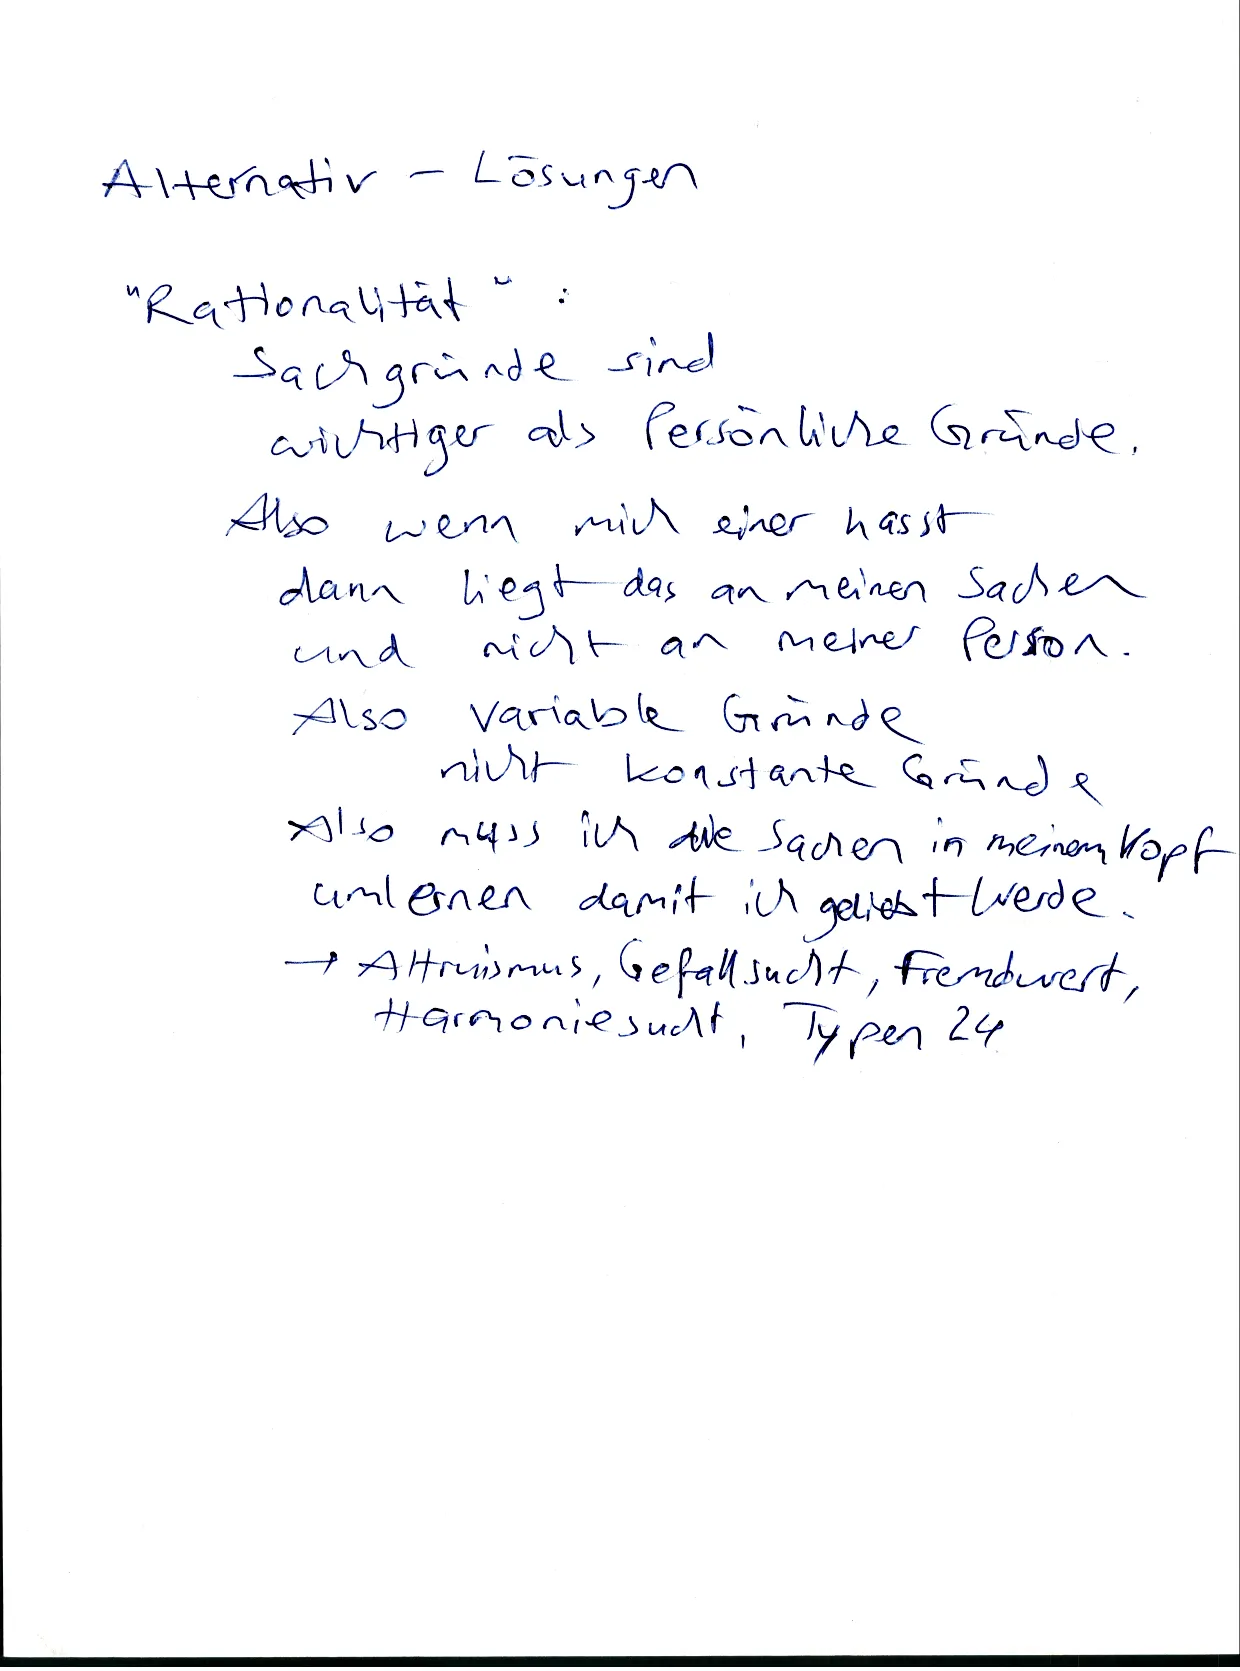 Alternativ - Lösungen
"Rationalität":
Sachgründe sind
wichtiger als Persönliche Gründe.
Also wenn mich einer hasst
dann liegt das an meinen Sachen
und nicht an meiner Person.
Also variable Gründe
nicht konstante Gründe
Also muss ich die Sachen in meinem Kopf
umlernen damit ich geliebt werde.
→ Altruismus, Gefallsucht, Fremdwert,
Harmoniesucht, Typen 24